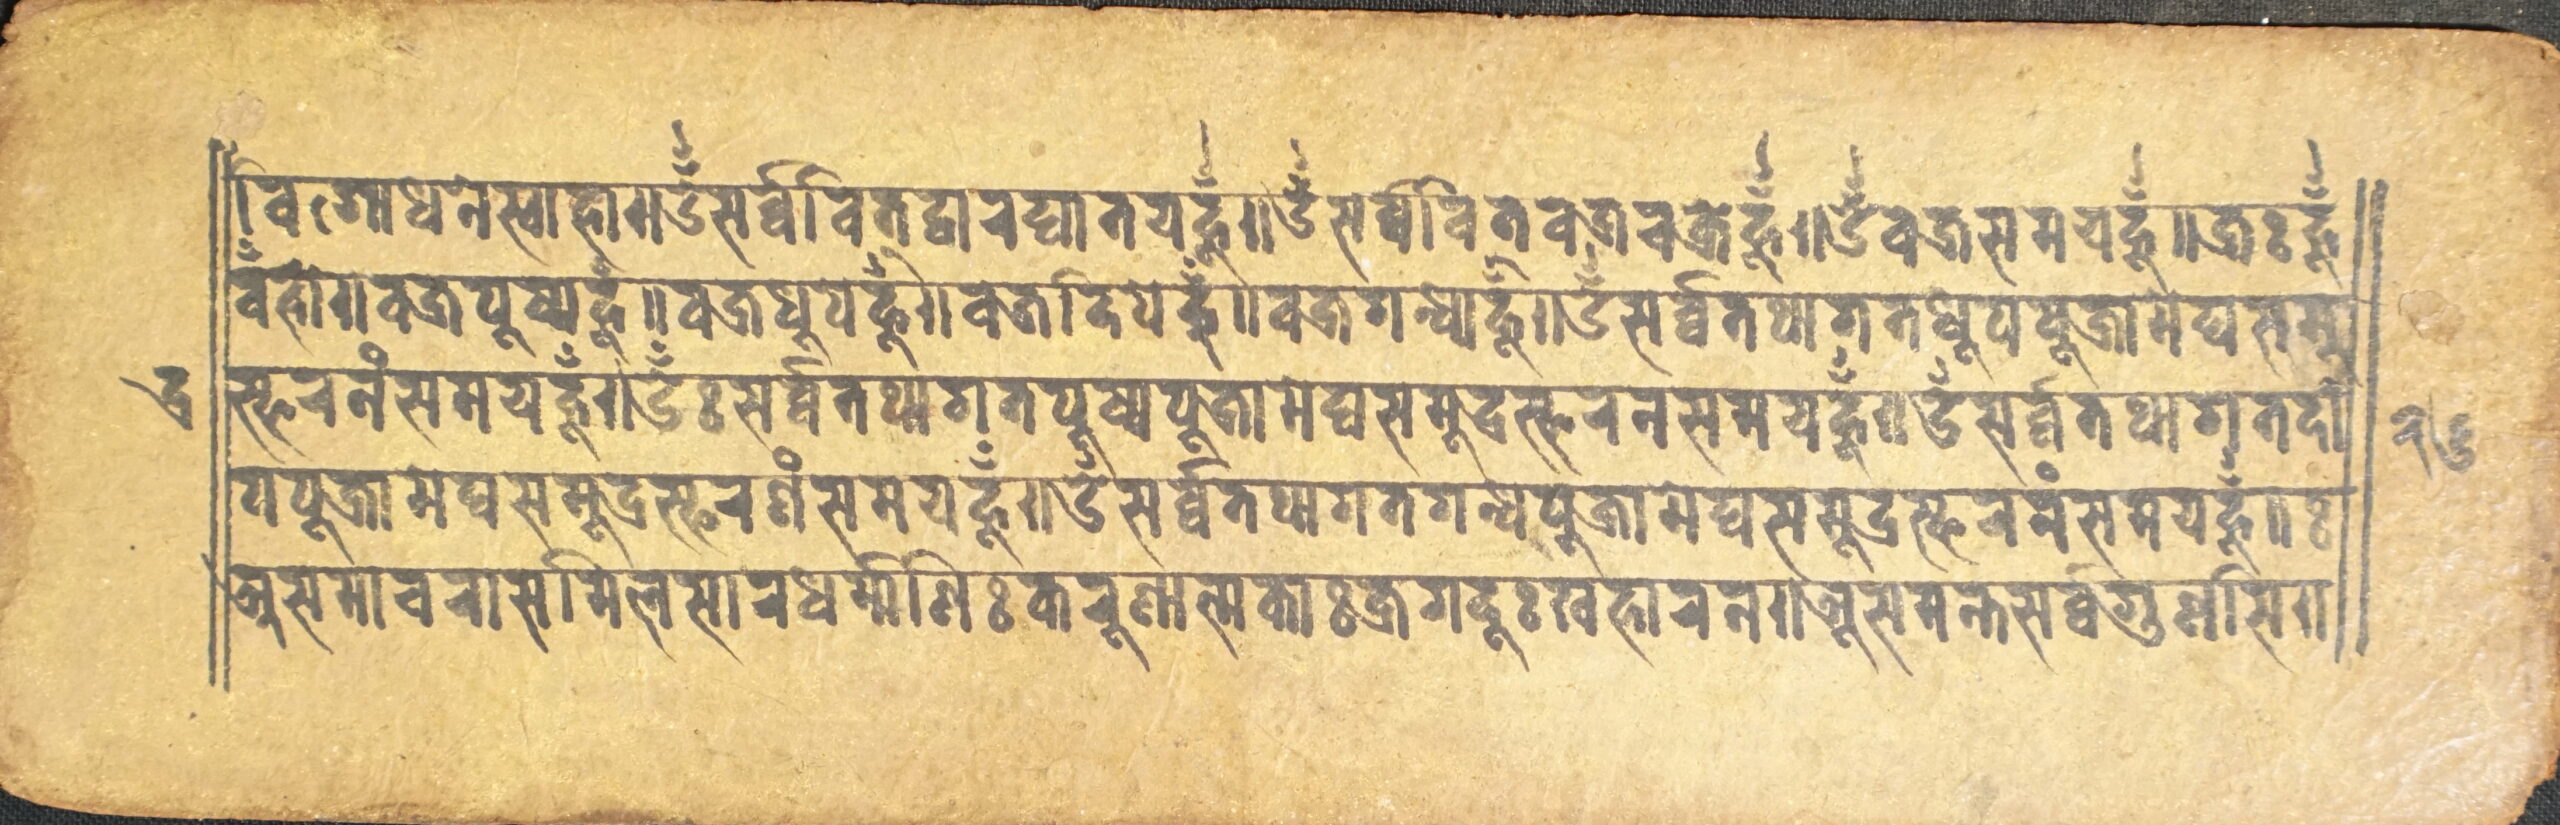 विशोधनेस्वाहा॥ॐसर्व्ववितद्वारघातयहूँ॥ॐसर्व्ववितवज्रचक्रेहूँ॥ॐवज्रसमयहूँ॥ज्रःहूँ
वँहो॥वज्रपूष्पहूँ॥वज्रधूपेहूँ॥वज्रदिपेहूँ॥वज्रगन्ध्याहूँ॥ॐसर्व्वतथागतधूपपूजामेघसमु
द्र स्फरनंसमयहूँ॥ॐःसर्व्वतथागतपूष्पपूजामेघसमूद्रस्फरनसमयहूँ॥ॐसर्व्वतथागतदी
पपूजामेघसमूद्रस्फरणंसमयहूँ॥ॐसर्व्वतथागतगन्धपूजामेघसमूद्रस्फरनंसमयहूँ॥ः
असमाचरासमिलसारधर्म्माणिःकरूणात्मकाःजगदूःखहारन॥असमन्तसर्व्वगुणसि॥